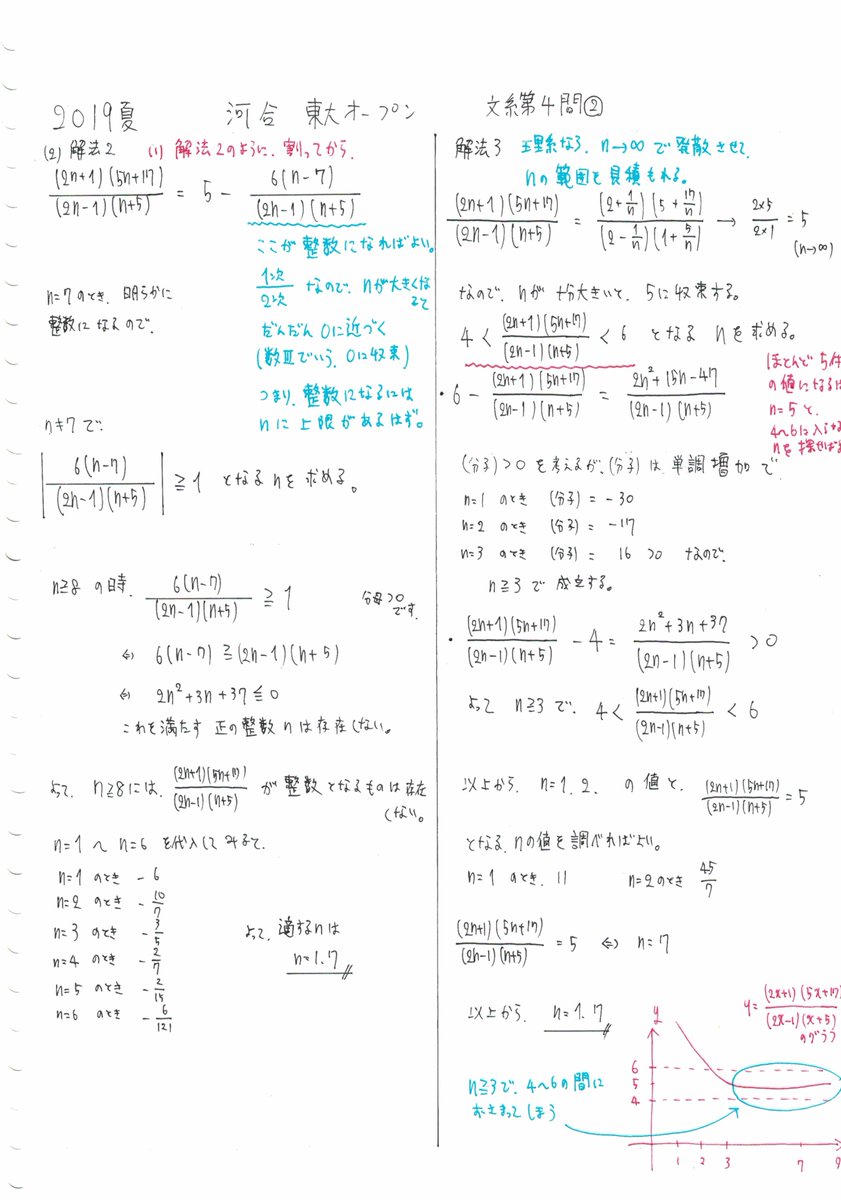 2019夏 河合 東大オープン 文系第4問②
(2) 解法2 (1) 解法2のように、割ってから、
(2n+1)(5n+17)/(2n-1)(n+5) = 5 - 6(n-7)/(2n-1)(n+5)
ここが整数になればよい。
1次/2次 なので、nが大きくなると
だんだん0に近づく
(数Ⅲでいう、0に収束)
つまり、整数になるには
nに上限があるはず。
n=7のとき、明らかに
整数になるので、
n≠7で、
|6(n-7)/(2n-1)(n+5)| ≧ 1 となるnを求める。
n≧8の時、 6(n-7)/(2n-1)(n+5) ≧ 1 分母>0
です。
⇔ 6(n-7) ≧ (2n-1)(n+5)
⇔ 2n²+3n+37 ≦ 0
これを満たす 正の整数nは存在しない。
よって、n≧8には、(2n+1)(5n+17)/(2n-1)(n+5) が整数となるものは存在
しない。
n=1〜n=6を代入してみると、
n=1のとき -6
n=2のとき -10/7
n=3のとき -3/5
n=4のとき -2/7
n=5のとき -2/15
n=6のとき -6/121
よって、適するnは
n=1.7
解法3 理系なら、n→∞で発散させて、
nの範囲を見積もれる。
(2n+1)(5n+17)/(2n-1)(n+5) = (2+1/n)(5+17/n)/(2-1/n)(1+5/n) → 2×5/2×1 = 5
(n→∞)
なので、nが十分大きいと、5に収束する。
4 < (2n+1)(5n+17)/(2n-1)(n+5) < 6 となる nを求める。
ほとんど5付
の値になるは
n=5と、
4〜6に入らな
nを探せばよ
・6 - (2n+1)(5n+17)/(2n-1)(n+5) = 2n²+15n-47/(2n-1)(n+5)
(分子)>0を考えるが、(分子)は単調増加で、
n=1のとき (分子) = -30
n=2のとき (分子) = -17
n=3のとき (分子) = 16 >0 なので、
n≧3で成立する。
・(2n+1)(5n+17)/(2n-1)(n+5) - 4 = 2n²+3n+37/(2n-1)(n+5) > 0
よって n≧3で、4 < (2n+1)(5n+17)/(2n-1)(n+5) < 6
以上から、n=1、2、の値と、(2n+1)(5n+17)/(2n-1)(n+5) = 5
となるnの値を調べればよい。
n=1のとき、11 n=2のとき 45/7
(2n+1)(5n+17)/(2n-1)(n+5) = 5 ⇔ n=7
以上から、n=1.7
y=(2x+1)(5x+17)/(2x-1)(x+5)
のグラフ
y
6
5
4
n≧3で、4〜6の間に
おさまってしまう
1 2 3 7 9